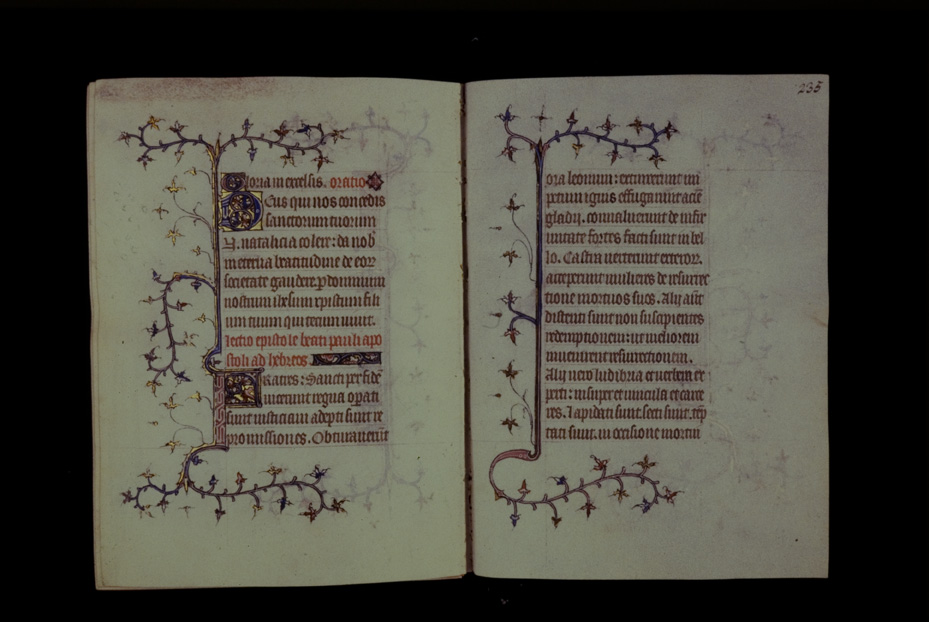 Gloria in excelsis. oratio
Deus qui nos concedis
sanctorum tuorum
N. natalicia colere: da nob
in eterna beatitudine de eor
societate gaudere. p dominum
nostrum ihesum xpistum fili
um tuum qui tecum viuit.
lectio epistole beati pauli apo
stoli ad hebreos
Fratres: Sancti per fidē
uicerunt regna opati
sunt iusticiam adepti sunt re
promissiones. Obturauerūt
235
ora leonum: extinxerunt im
petum ignis effugauerunt aciē
gladij. conualuerunt de infir
mitate fortes facti sunt in bel
lo. Castra uerterunt exteror.
acceperunt mulieres de resurrec
tione mortuos suos. Alij aūt
distenti sunt non suscipientes
redemptionem: ut meliorem
inuenirent resurectionem.
Alij uero ludibria et uerbera ex
perti: insuper et uincula et carce
res. Lapidati sunt. secti sunt. tēp
tati sunt. in occisione mortui